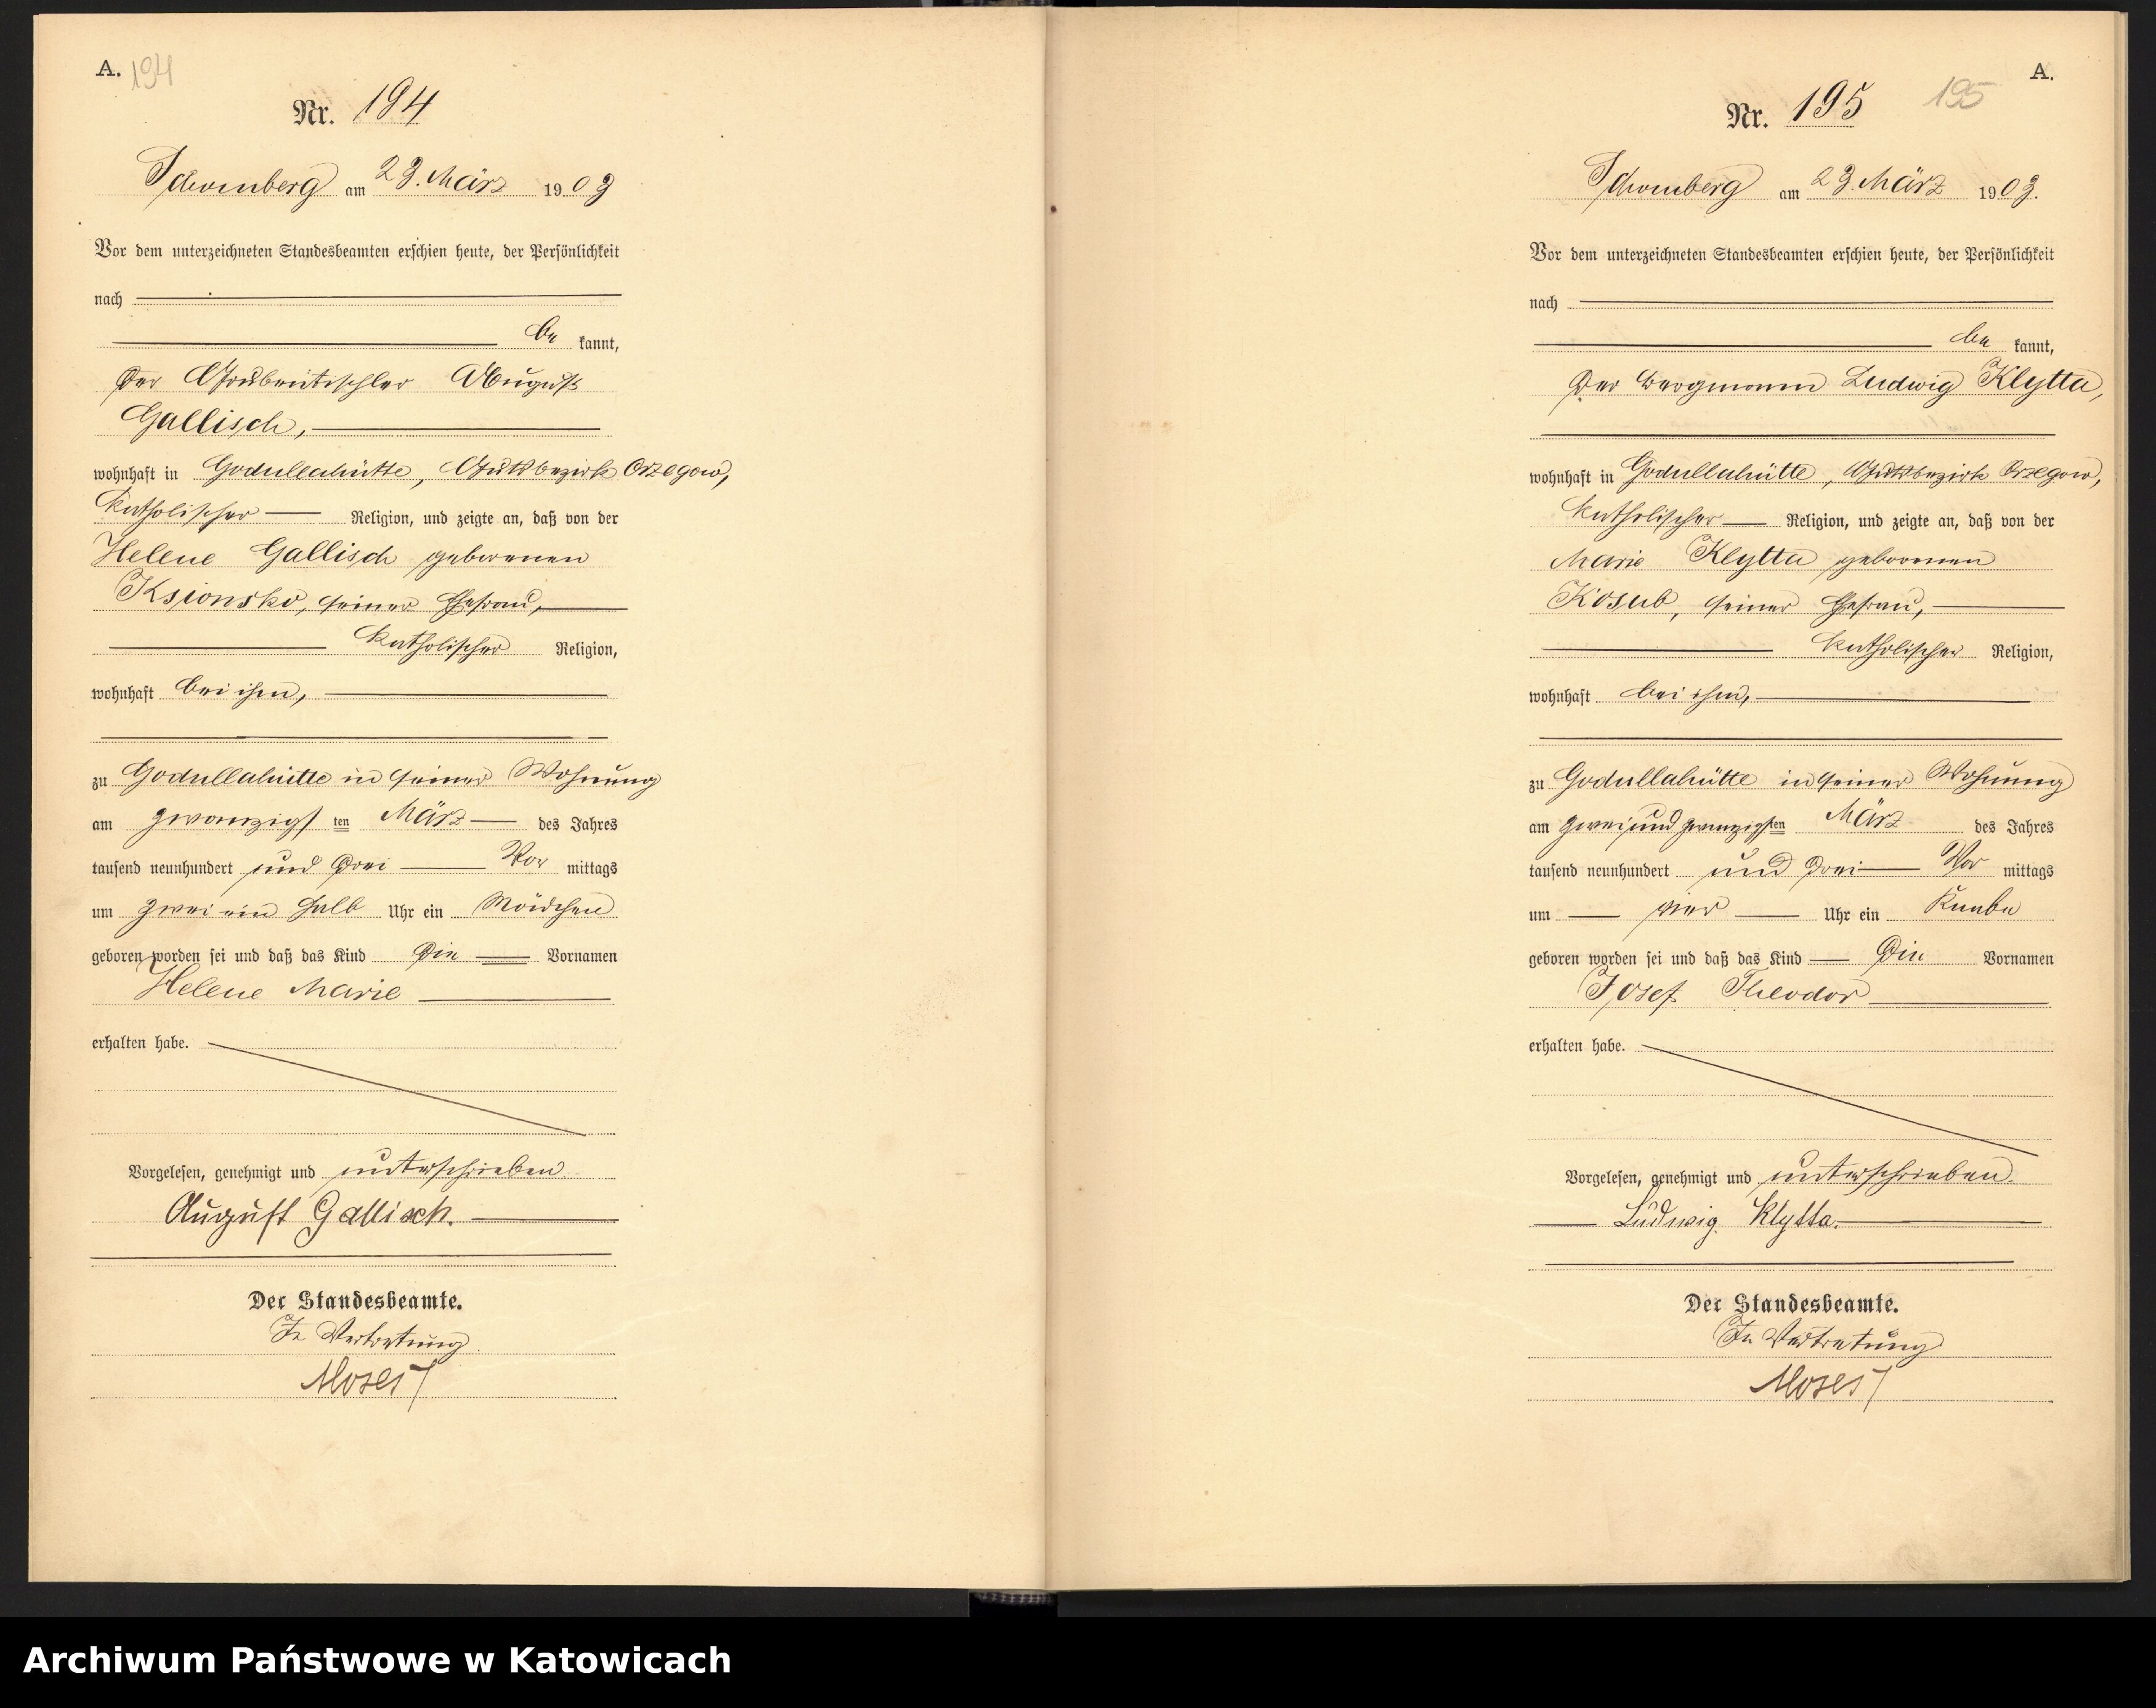 A. 194
Nr. 194
Schomberg am 23. März 1903
Vor dem unterzeichneten Standesbeamten erschien heute, der Persönlichkeit
nach
be kannt,
der Grubentischler August
Gallisch,
wohnhaft in Godullahütte, Gutsbezirk Orzegow,
katholischer Religion, und zeigte an, daß von der
Helene Gallisch geborenen
Ksionsko, seiner Ehefrau,
katholischer Religion,
wohnhaft bei ihm,
zu Godullahütte in seiner Wohnung
am zwanzigs ten März des Jahres
tausend neunhundert und drei Vor mittags
um zwei ein halb Uhr ein Mädchen
geboren worden sei und daß das Kind die Vornamen
Helene Marie
erhalten habe.
Vorgelesen, genehmigt und unterschrieben
August Gallisch.
Der Standesbeamte.
In Vertretung
Moses
A.
195
Nr. 195
Schomberg am 23. März 1903.
Vor dem unterzeichneten Standesbeamten erschien heute, der Persönlichkeit
nach
be kannt,
der Bergmann Ludwig Klytta,
wohnhaft in Godullahütte, Gutsbezirk Orzegow,
katholischer Religion, und zeigte an, daß von der
Marie Klytta geborenen
Kosub, seiner Ehefrau,
katholischer Religion,
wohnhaft bei ihm,
zu Godullahütte in seiner Wohnung
am zweiundzwanzigsten März des Jahres
tausend neunhundert und drei Vor mittags
um vier Uhr ein Knabe
geboren worden sei und daß das Kind die Vornamen
Josef Theodor
erhalten habe.
Vorgelesen, genehmigt und unterschrieben.
Ludwig Klytta.
Der Standesbeamte.
In Vertretung
Moses
Archiwum Państwowe w Katowicach